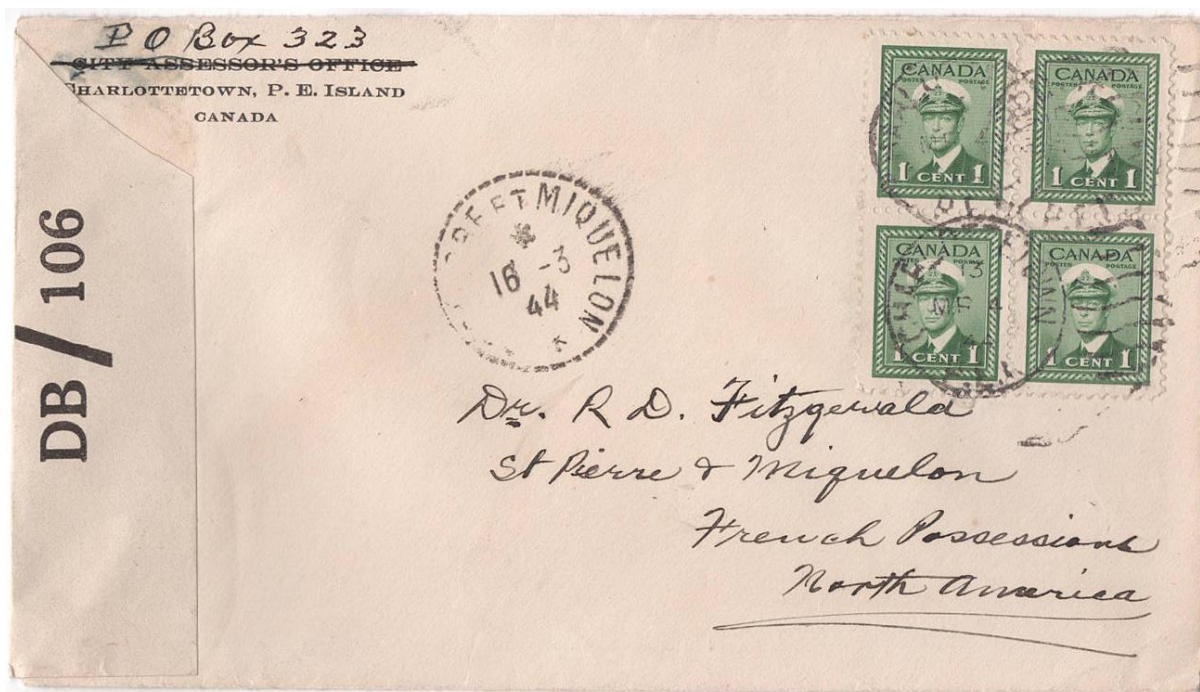 P O Box 323
CITY ASSESSOR'S OFFICE
CHARLOTTETOWN, P. E. ISLAND
CANADA
DB/106
MIQUELON
16 -3
44
CANADA
POSTES POSTAGE
1 CENT 1
CANADA
POSTES POSTAGE
1 CENT 1
CANADA
POSTES POSTAGE
1 CENT 1
CANADA
POSTES POSTAGE
1 CENT 1
Dr. R. D. Fitzgerald
St Pierre & Miquelon
French Possessions
North America